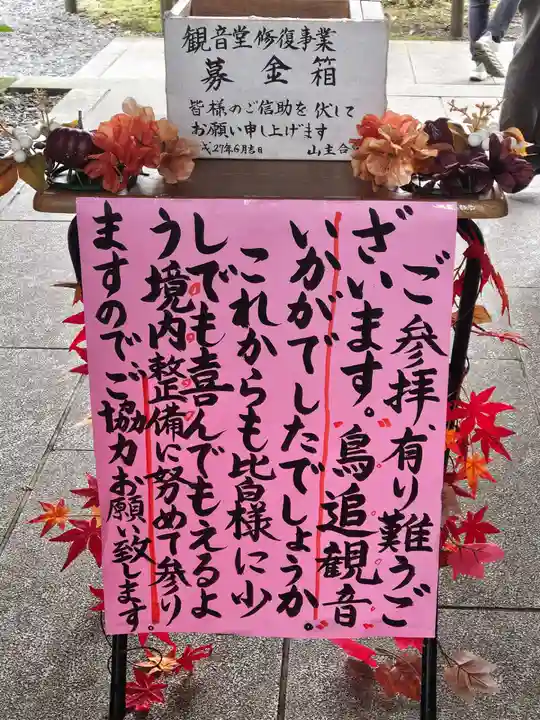 観音堂修復事業
募金箱
皆様のご信助を伏して
お願い申し上げます
成27年6月吉日 山主合
ご参拝、有り難うご
ざいます。鳥追観音
いかがでしたでしょうか。
これからも皆様に少
しでも喜んでもえるよ
う境内整備に努めて参り
ますのでご協力お願い致します。